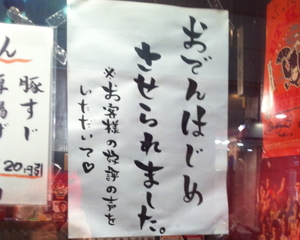 おでんはじめ
させられました。
※お客様の好評の声を
いただいて♡
ん
豚すじ
厚揚げ
20円引